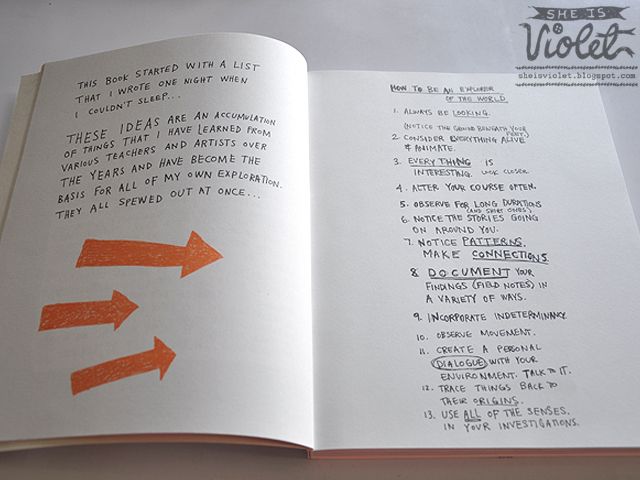 SHE IS
Violet
sheisviolet.blogspot.com
THIS BOOK STARTED WITH A LIST
THAT I WROTE ONE NIGHT WHEN
I COULDN'T SLEEP...
THESE IDEAS ARE AN ACCUMULATION
OF THINGS THAT I HAVE LEARNED FROM
VARIOUS TEACHERS AND ARTISTS OVER
THE YEARS AND HAVE BECOME THE
BASIS FOR ALL OF MY OWN EXPLORATION.
THEY ALL SPEWED OUT AT ONCE...
HOW TO BE AN EXPLORER
OF THE WORLD
1. ALWAYS BE LOOKING.
(NOTICE THE GROUND BENEATH YOUR
FEET.)
2. CONSIDER EVERYTHING ALIVE
& ANIMATE.
3. EVERYTHING IS
INTERESTING. LOOK CLOSER.
4. ALTER YOUR COURSE OFTEN.
5. OBSERVE FOR LONG DURATIONS
(AND SHORT ONES).
6. NOTICE THE STORIES GOING
ON AROUND YOU.
7. NOTICE PATTERNS.
MAKE CONNECTIONS.
8. DOCUMENT YOUR
FINDINGS (FIELD NOTES) IN
A VARIETY OF WAYS.
9. INCORPORATE INDETERMINANCY.
10. OBSERVE MOVEMENT.
11. CREATE A PERSONAL
DIALOGUE WITH YOUR
ENVIRONMENT. TALK TO IT.
12. TRACE THINGS BACK TO
THEIR ORIGINS.
13. USE ALL OF THE SENSES.
IN YOUR INVESTIGATIONS.